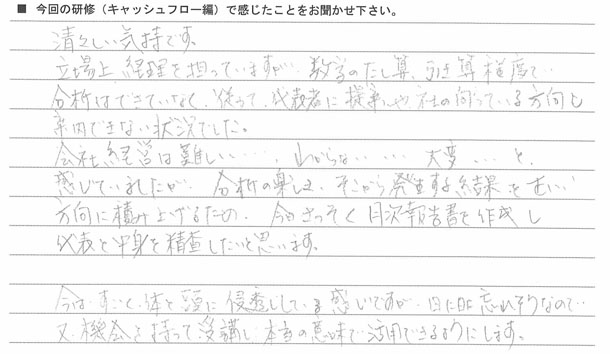 ■ 今回の研修（キャッシュフロー編）で感じたことをお聞かせ下さい。
清々しい気持です。
立場上、経理を担っていますが、数字のたし算、引き算程度で…
分析はできていなく、従って、代表者に提案や会社の向っている方向も
案内できない状況でした。
会社経営は難しい……、わからない…… 大変…と、
感じていましたが、分析の楽しさ、そこから発生する結果をせいい
方向に積み上げるため、今日さっそく月次報告書を作成し
代表と中身を精査したいと思います。
今は、すごく体と頭に侵透している感じですが、日に日に忘れそうなので…
又、機会を持って受講し、本当の意味で活用できるようにします。